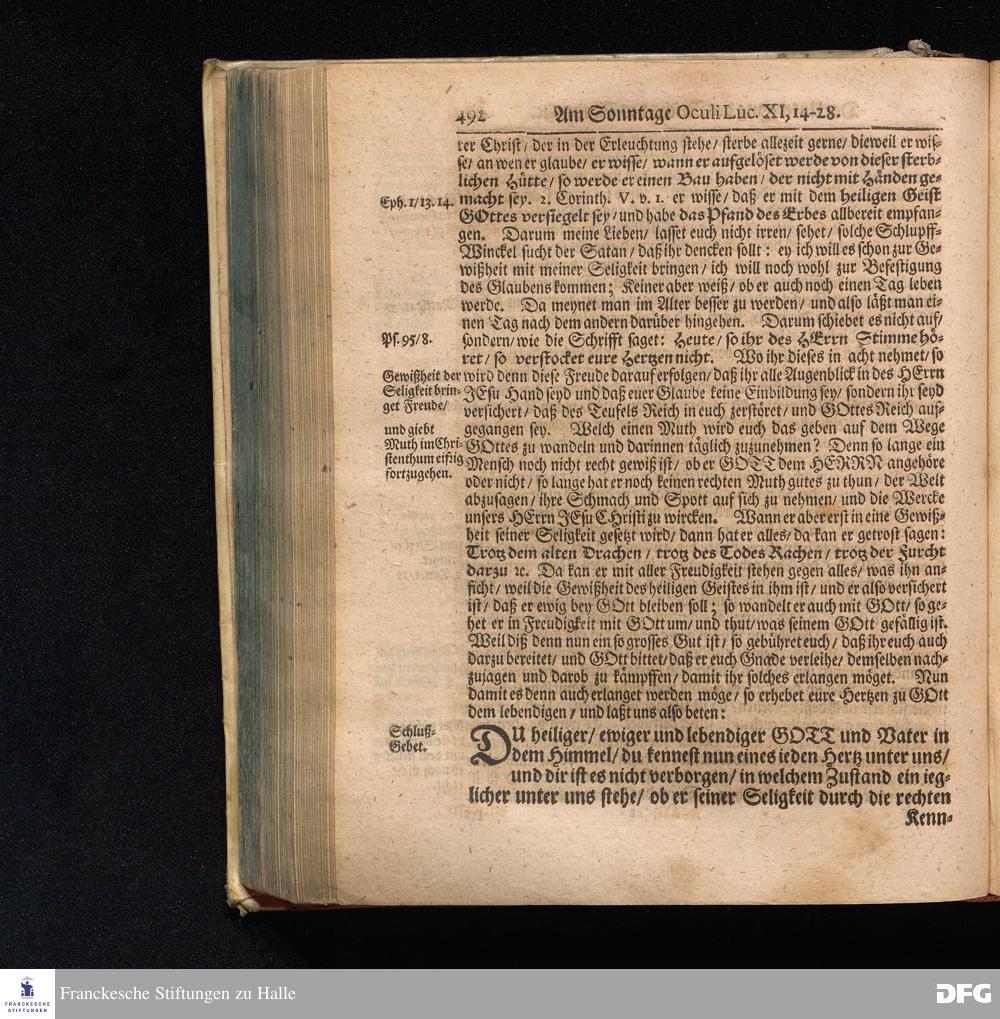 492 Am Sonntage Oculi Luc. XI, 14-28.
rer Christ/ der in der Erleuchtung stehe/ sterbe allezeit gerne/ dieweil er wis-
se/ an wen er glaube/ er wisse/ wann er aufgelöset werde von dieser sterb-
lichen Hütte/ so werde er einen Bau haben/ der nicht mit Händen ge-
Eph. 1/13. 14.
macht sey. 2. Corinth. V. v. 1. er wisse/ daß er mit dem heiligen Geist
GOttes versiegelt sey/ und habe das Pfand des Erbes allbereit empfan-
gen. Darum meine Lieben/ lasset euch nicht irren/ sehet/ solche Schlupff-
Winckel sucht der Satan/ daß ihr dencken sollt: ey ich will es schon zur Ge-
wißheit mit meiner Seligkeit bringen/ ich will noch wohl zur Befestigung
des Glaubens kommen; Keiner aber weiß/ ob er auch noch einen Tag leben
werde. Da meynet man im Alter besser zu werden/ und also läßt man ei-
nen Tag nach dem andern darüber hingehen. Darum schiebet es nicht auf/
Ps. 95/8.
sondern/ wie die Schrifft saget: Heute/ so ihr des HErrn Stimme hö-
ret/ so verstocket eure Hertzen nicht. Wo ihr dieses in acht nehmet/ so
Gewißheit der
Seligkeit brin-
get Freude/
wird denn diese Freude darauf erfolgen/ daß ihr alle Augenblick in des HErrn
JEsu Hand seyd und daß euer Glaube keine Einbildung sey/ sondern ihr seyd
versichert/ daß des Teufels Reich in euch zerstöret/ und GOttes Reich auf-
und giebt
Muth im Chri-
stenthum eifrig
fortzugehen.
gegangen sey. Welch einen Muth wird euch das geben auf dem Wege
GOttes zu wandeln und darinnen täglich zuzunehmen? Denn so lange ein
Mensch noch nicht recht gewiß ist/ ob er GOTT dem HERRN angehöre
oder nicht/ so lange hat er noch keinen rechten Muth gutes zu thun/ der Welt
abzusagen/ ihre Schmach und Spott auf sich zu nehmen/ und die Wercke
unsers HErrn JEsu CHristi zu wircken. Wann er aber erst in eine Gewiß-
heit seiner Seligkeit gesetzt wird/ dann hat er alles/ da kan er getrost sagen:
Trotz dem alten Drachen/ trotz des Todes Rachen/ trotz der Furcht
darzu ꝛc. Da kan er mit aller Freudigkeit stehen gegen alles/ was ihn an-
ficht/ weil die Gewißheit des heiligen Geistes in ihm ist/ und er also versichert
ist/ daß er ewig bey GOtt bleiben soll; so wandelt er auch mit GOtt/ so ge-
het er in Freudigkeit mit GOtt um/ und thut/ was seinem GOtt gefällig ist.
Weil diß denn nun ein so grosses Gut ist/ so gebühret euch/ daß ihr euch auch
darzu bereitet/ und GOtt bittet/ daß er euch Gnade verleihe/ demselben nach-
zujagen und darob zu kämpffen/ damit ihr solches erlangen möget. Nun
damit es denn auch erlanget werden möge/ so erhebet eure Hertzen zu GOtt
dem lebendigen/ und laßt uns also beten:
Schluß-
Gebet.
DU heiliger/ ewiger und lebendiger GOTT und Vater in
dem Himmel/ du kennest nun eines ieden Hertz unter uns/
und dir ist es nicht verborgen/ in welchem Zustand ein ieg-
licher unter uns stehe/ ob er seiner Seligkeit durch die rechten
Kenn-
FRANCKESCHE
STIFTUNGEN
Franckesche Stiftungen zu Halle
DFG